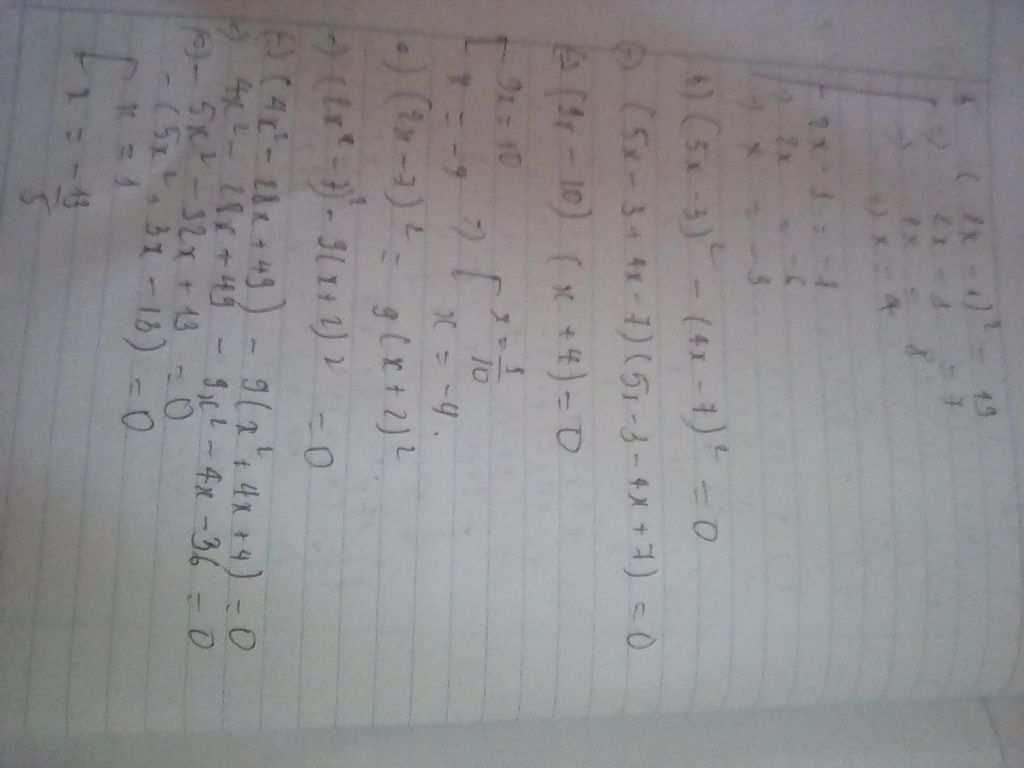 (2x - 1)² = 49
=> 2x - 1 = 7
=> 2x = 8
=> x = 4
- 2x - 1 = - 7
2x = - 6
x = - 3
b) (5x - 3)² - (4x - 7)² = 0
<=> (5x - 3 + 4x - 7) (5x - 3 - 4x + 7) = 0
<=> (9x - 10) (x + 4) = 0
[ 9x = 10
x = - 9 => [ x = 9/10
x = - 4.
c) (2x - 7)² = 9(x + 2)²
=> (2x - 7)² - 9(x + 2)² = 0
<=> (4x² - 28x + 49) - 9(x² + 4x + 4) = 0
=> 4x² - 28x + 49 - 9x² - 4x - 36 = 0
<=> - 5x² - 32x + 13 = 0
- (5x² + 3x - 18) = 0
[ x = 1
x = - 13/5